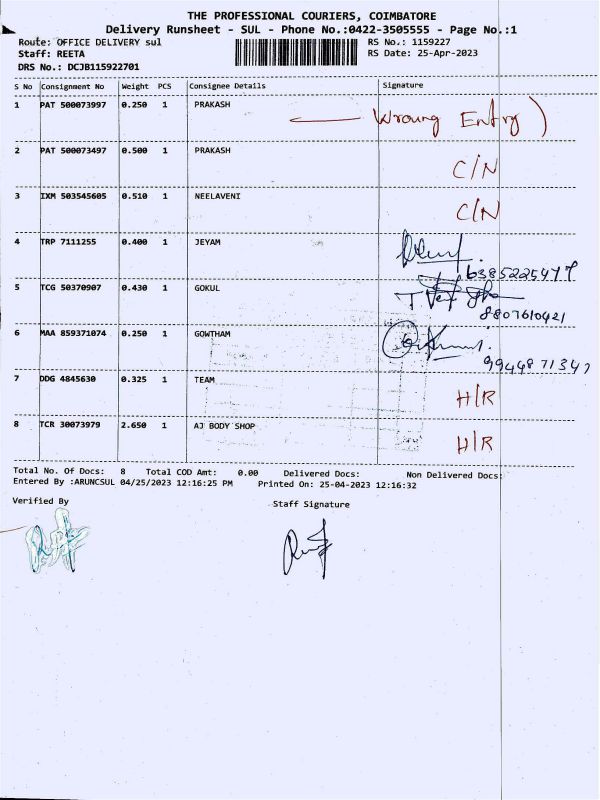 THE PROFESSIONAL COURIERS, COIMBATORE
Delivery Runsheet - SUL - Phone No.:0422-3505555 - Page No.:1
Route: OFFICE DELIVERY sul RS No.: 1159227
Staff: REETA RS Date: 25-Apr-2023
DRS No.: DCJB115922701
S No Consignment No Weight PCS Consignee Details Signature
1 PAT 500073997 0.250 1 PRAKASH Wroung Entry)
2 PAT 500073497 0.500 1 PRAKASH C/N
3 IXM 503545605 0.510 1 NEELAVENI C/N
4 TRP 7111255 0.400 1 JEYAM
6385225477
5 TCG 50370907 0.430 1 GOKUL
8807610421
6 MAA 859371074 0.250 1 GOWTHAM
9944871347
7 DDG 4845630 0.325 1 TEAM H/R
8 TCR 30073979 2.650 1 AJ BODY SHOP H/R
Total No. Of Docs: 8 Total COD Amt: 0.00 Delivered Docs: Non Delivered Docs:
Entered By :ARUNCSUL 04/25/2023 12:16:25 PM Printed On: 25-04-2023 12:16:32
Verified By Staff Signature